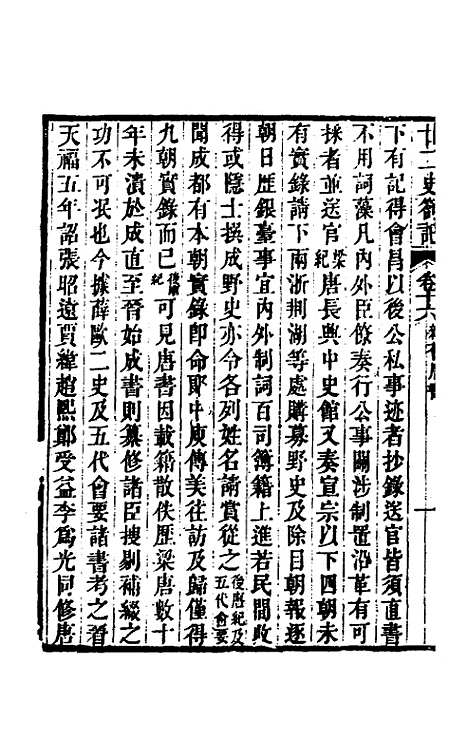 廿二史劄記
卷十六
一
下有記得會昌以後公私事迹者抄錄送官皆須直書
不用詞藻凡內外臣僚奏行公事關涉制置沿革有可
採者並送官梁紀唐長興中史館又奏宣宗以下四朝未
有實錄請下兩浙荆湖等處購募野史及除目朝報逐
朝日歷銀臺事宜內外制詞百司簿籍上進若民間收
得或隱士撰成野史亦令各列姓名請賞從之後唐紀及五代會要
聞成都有本朝實錄卽命郞中庾傳美往訪及歸僅得
九朝實錄而已後唐紀可見唐書因載籍散佚歷梁唐數十
年未潰於成直至晉始成書則纂修諸臣搜剔補綴之
功不可泯也今據薛歐二史及五代會要諸書考之晉
天福五年詔張昭遠賈緯趙熙鄭受益李爲光同修唐